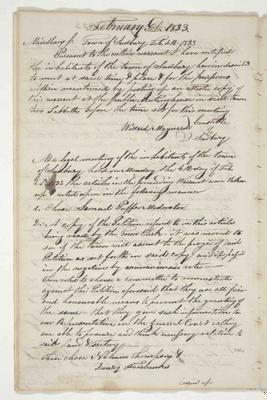 February 4th. 1833.
Middlesex ss. Town of Sudbury Feb. 4th 1833
Pursuant to the within warrant I have notified
the inhabitants of the town of Sudbury herein
to meet at said time & place & for the purposes
within mentioned by posting up an attested copy of
this warrant at the meetinghouse in said town
two Sabbaths before the time set for this meeting
Willard Constable
Sudbury
At a legal meeting of the inhabitants of the town
of Sudbury, held on Monday the 4th day of Feb.
1833 the articles in the preceding Warrant were taken
up & acted upon in the following manner
1. Chose Samuel Puffer Moderator
2. A copy of the Petition referred to in this article
being read by the Town Clerk. It was moved to
see if the town will assent to the prayer of said
Petition as set forth in said copy, and it passed
in the negative by unanimous vote
Then voted to choose a committee to remonstrate
against the Petition aforesaid & that they use all fair
and honourable means to prevent the granting of
the same & that they give such information to
our Representative in the General Court as they
are able to procure and think necessary relative to
said
then chose Nahum Thompson &
Drury Fairbanks